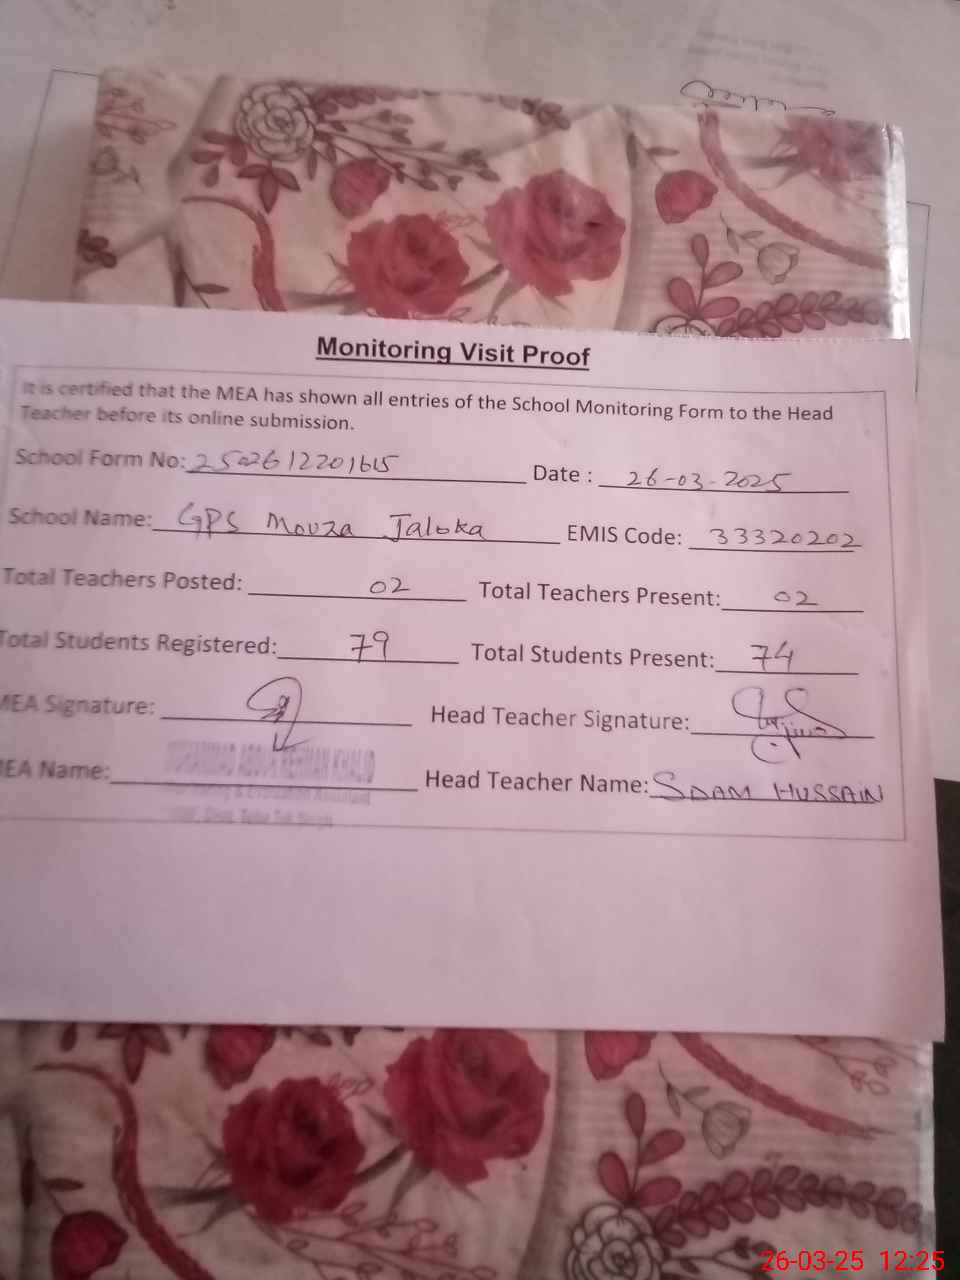 Monitoring Visit Proof
It is certified that the MEA has shown all entries of the School Monitoring Form to the Head
Teacher before its online submission.
School Form No: Date : 26-03-2025
School Name: GPS Mouza Jaloka EMIS Code: 33320202
Total Teachers Posted: 02 Total Teachers Present: 02
Total Students Registered: 79 Total Students Present: 74
MEA Signature: Head Teacher Signature:
MEA Name: Head Teacher Name: SDAM HUSSAIN
MUHAMMAD ABDUR REHMAN KHALID
Monitoring & Evaluation Assistant
Toba Tek Singh
26-03-25 12:25